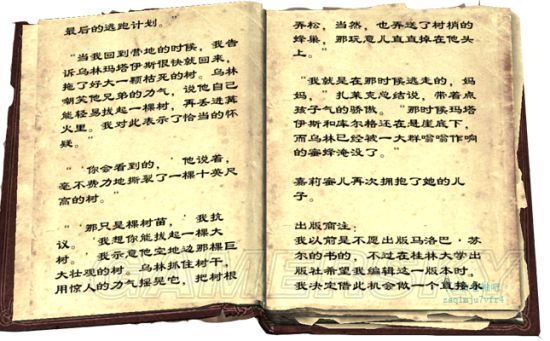 最后的逃跑计划。"
"当我回到营地的时候，我告
诉乌林玛塔伊斯很快就回来，
拖了好大一颗枯死的树。乌林
嘲笑他兄弟的力气，说他自己
能轻易拔起一棵树，再丢进篝
火里。我对此表示了恰当的怀
疑。"
"'你会看到的，'他说着，
毫不费力地撕裂了一棵十英尺
高的树。"
"'那只是棵树苗，'我抗
议。'我想你能拔起一棵大
树。'我示意他空地边那棵巨
大壮观的树。乌林抓住树干，
用惊人的力气摇晃它，把树根
弄松，当然，也弄送了树梢的
蜂巢，那玩意儿直直掉在他头
上。"
"我就是在那时候逃走的，妈
妈，"扎莱克总结说，带着点
孩子气的骄傲。"那时候玛塔
伊斯和库尔格还在悬崖底下，
而乌林已经被一大群嗡嗡作响
的蜜蜂淹没了。"
嘉莉蜜儿再次拥抱了她的儿
子。
出版商注：
我以前是不愿出版马洛巴·苏
尔的书的，不过在桂林大学出
版社希望我编辑这一版本时，
我决定借此机会做一个直接永
GAMERSKY
zsqimju7vfr4